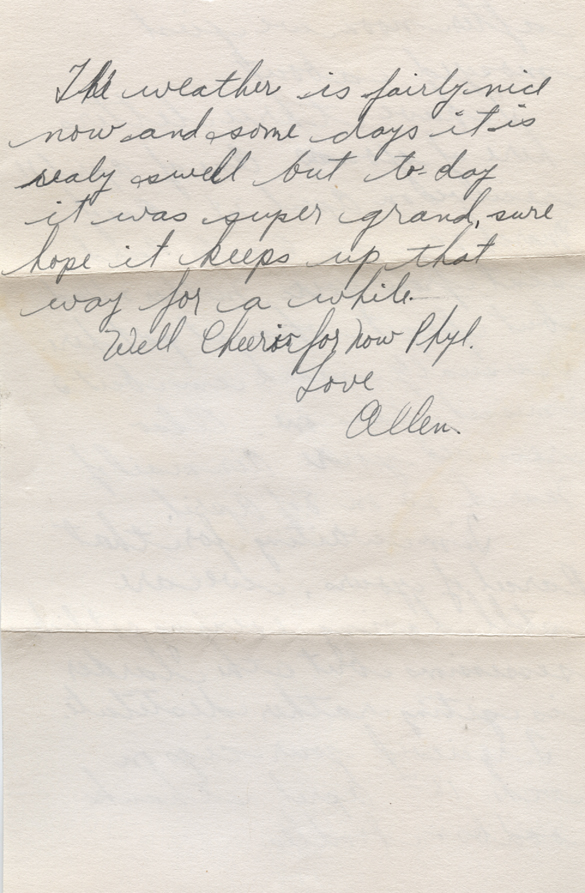 The weather is fairly nice
now and some days it is
realy swell but to-day
it was super grand, sure
hope it keeps up that
way for a while.
Well Cheerio for now Phyl.
Love
Allen.